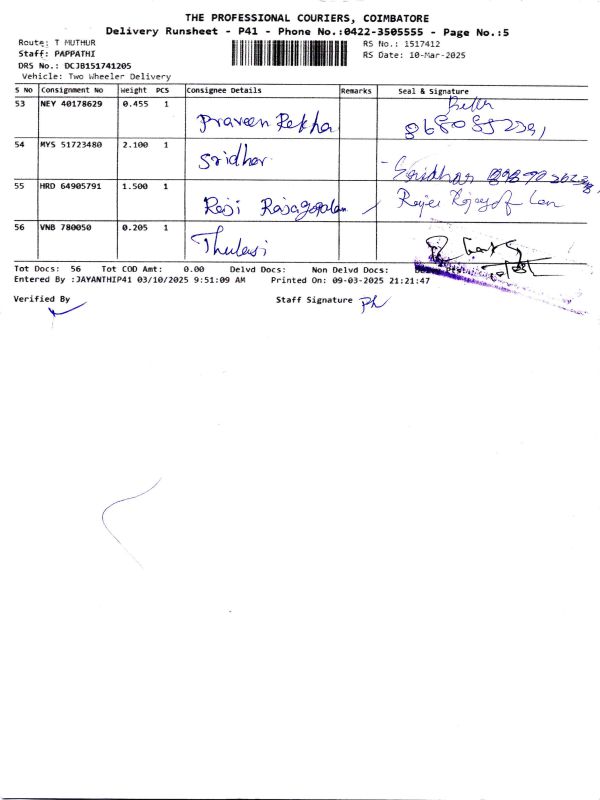 THE PROFESSIONAL COURIERS, COIMBATORE
Delivery Runsheet - P41 - Phone No.:0422-3505555 - Page No.:5
Route: T MUTHUR
RS No.: 1517412
Staff: PAPPATHI
RS Date: 10-Mar-2025
DRS No.: DCJB151741205
Vehicle: Two Wheeler Delivery
S No Consignment No Weight PCS Consignee Details Remarks Seal & Signature
53 NEY 40178629 0.455 1 Praveen Rekha
54 MYS 51723480 2.100 1 Sridhar Sridhar
55 HRD 64905791 1.500 1 Reji Rajagopalan
56 VNB 780050 0.205 1 Thulasi
Tot Docs: 56 Tot COD Amt: 0.00 Delvd Docs: Non Delvd Docs:
Entered By :JAYANTHIP41 03/10/2025 9:51:09 AM Printed On: 09-03-2025 21:21:47
Verified By Staff Signature